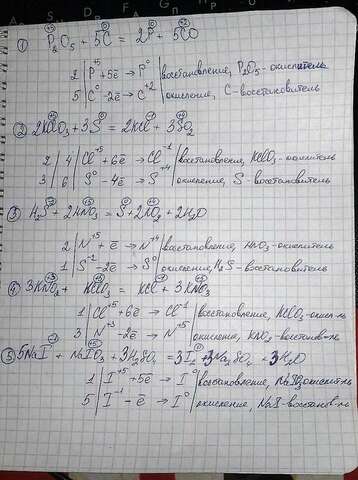 +5 0 0 +2
① P₂O₅ + 5C = 2P + 5CO
2 | P⁺⁵ + 5ē → P⁰ | восстановление, P₂O₅ - окислитель
5 | C⁰ - 2ē → C⁺² | окисление, C - восстановитель
+5 0 -1 +4
② 2KClO₃ + 3S = 2KCl + 3SO₂
2 | 4 | Cl⁺⁵ + 6ē → Cl⁻¹ | восстановление, KClO₃ - окислитель
3 | 6 | S⁰ - 4ē → S⁺⁴ | окисление, S - восстановитель
-2 +5 0 +4
③ H₂S + 2HNO₃ = S + 2NO₂ + 2H₂O
2 | N⁺⁵ + ē → N⁺⁴ | восстановление, HNO₃ - окислитель
1 | S⁻² - 2ē → S⁰ | окисление, H₂S - восстановитель
+3 +5 -1 +5
④ 3KNO₂ + KClO₃ = KCl + 3KNO₃
1 | Cl⁺⁵ + 6ē → Cl⁻¹ | восстановление, KClO₃ - окисл-ль
3 | N⁺³ - 2ē → N⁺⁵ | окисление, KNO₂ - восстанов-ль
-1 +5 0
⑤ 5NaI + NaIO₃ + 3H₂SO₄ = 3I₂ + 3Na₂SO₄ + 3H₂O
1 | I⁺⁵ + 5ē → I⁰ | восстановление, NaIO₃ окислит-ль
5 | I⁻¹ - ē → I⁰ | окисление, NaI - восстанов-ль